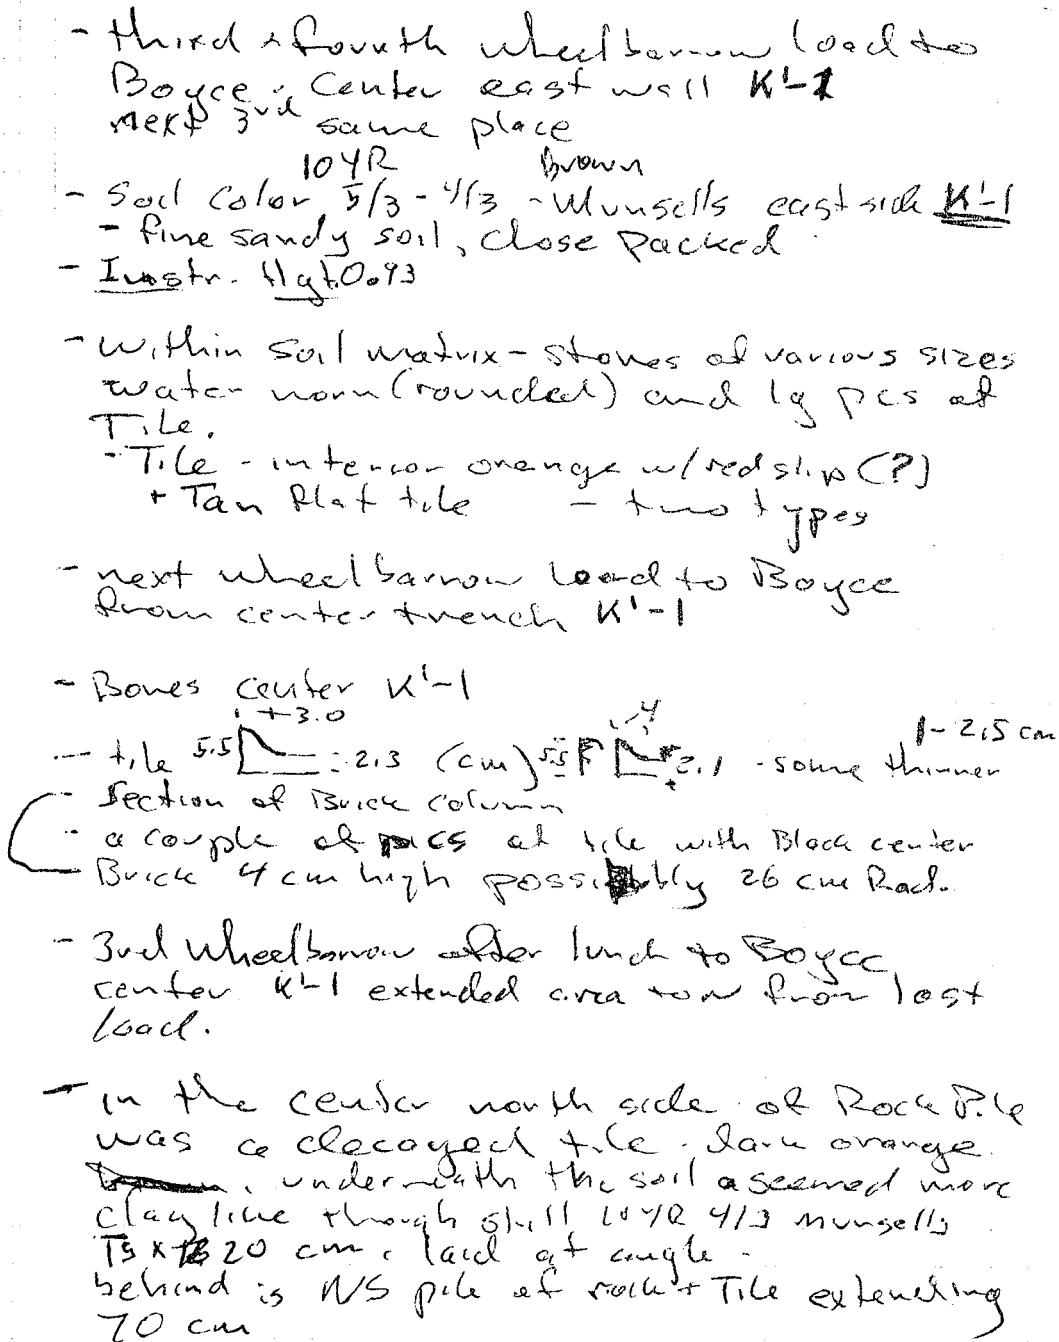 - third + fourth wheelbarrow load to
Boyce. Center east wall K'-1
next 3rd same place
10YR Brown
- Soil color 5/3 - 4/3 - Munsells east side K'-1
- fine sandy soil, close packed.
- Instr. Hgt. 0.93
- Within soil matrix - stones of various sizes
water worn (rounded) and lg pcs of
Tile.
- Tile - interior orange w/ red slip (?)
+ Tan flat tile - two types
- next wheelbarrow load to Boyce
from center trench K'-1
- Bones center K'-1
3.0 4
- tile 5.5 2.3 (cm) 5.5 2.1 - some thinner 1-2.5 cm
- Section of Brick column
- a couple of pcs of tile with Black center
- Brick 4 cm high possibly 26 cm Rad.
- 3rd wheelbarrow after lunch to Boyce
center K'-1 extended area from last
load.
- in the center north side of Rock Pile
was a decayed tile. dark orange.
underneath the soil seemed more
clay like though still 10YR 4/3 Munsells
20 cm. laid at angle.
behind is NS pile of rock + Tile extending
70 cm